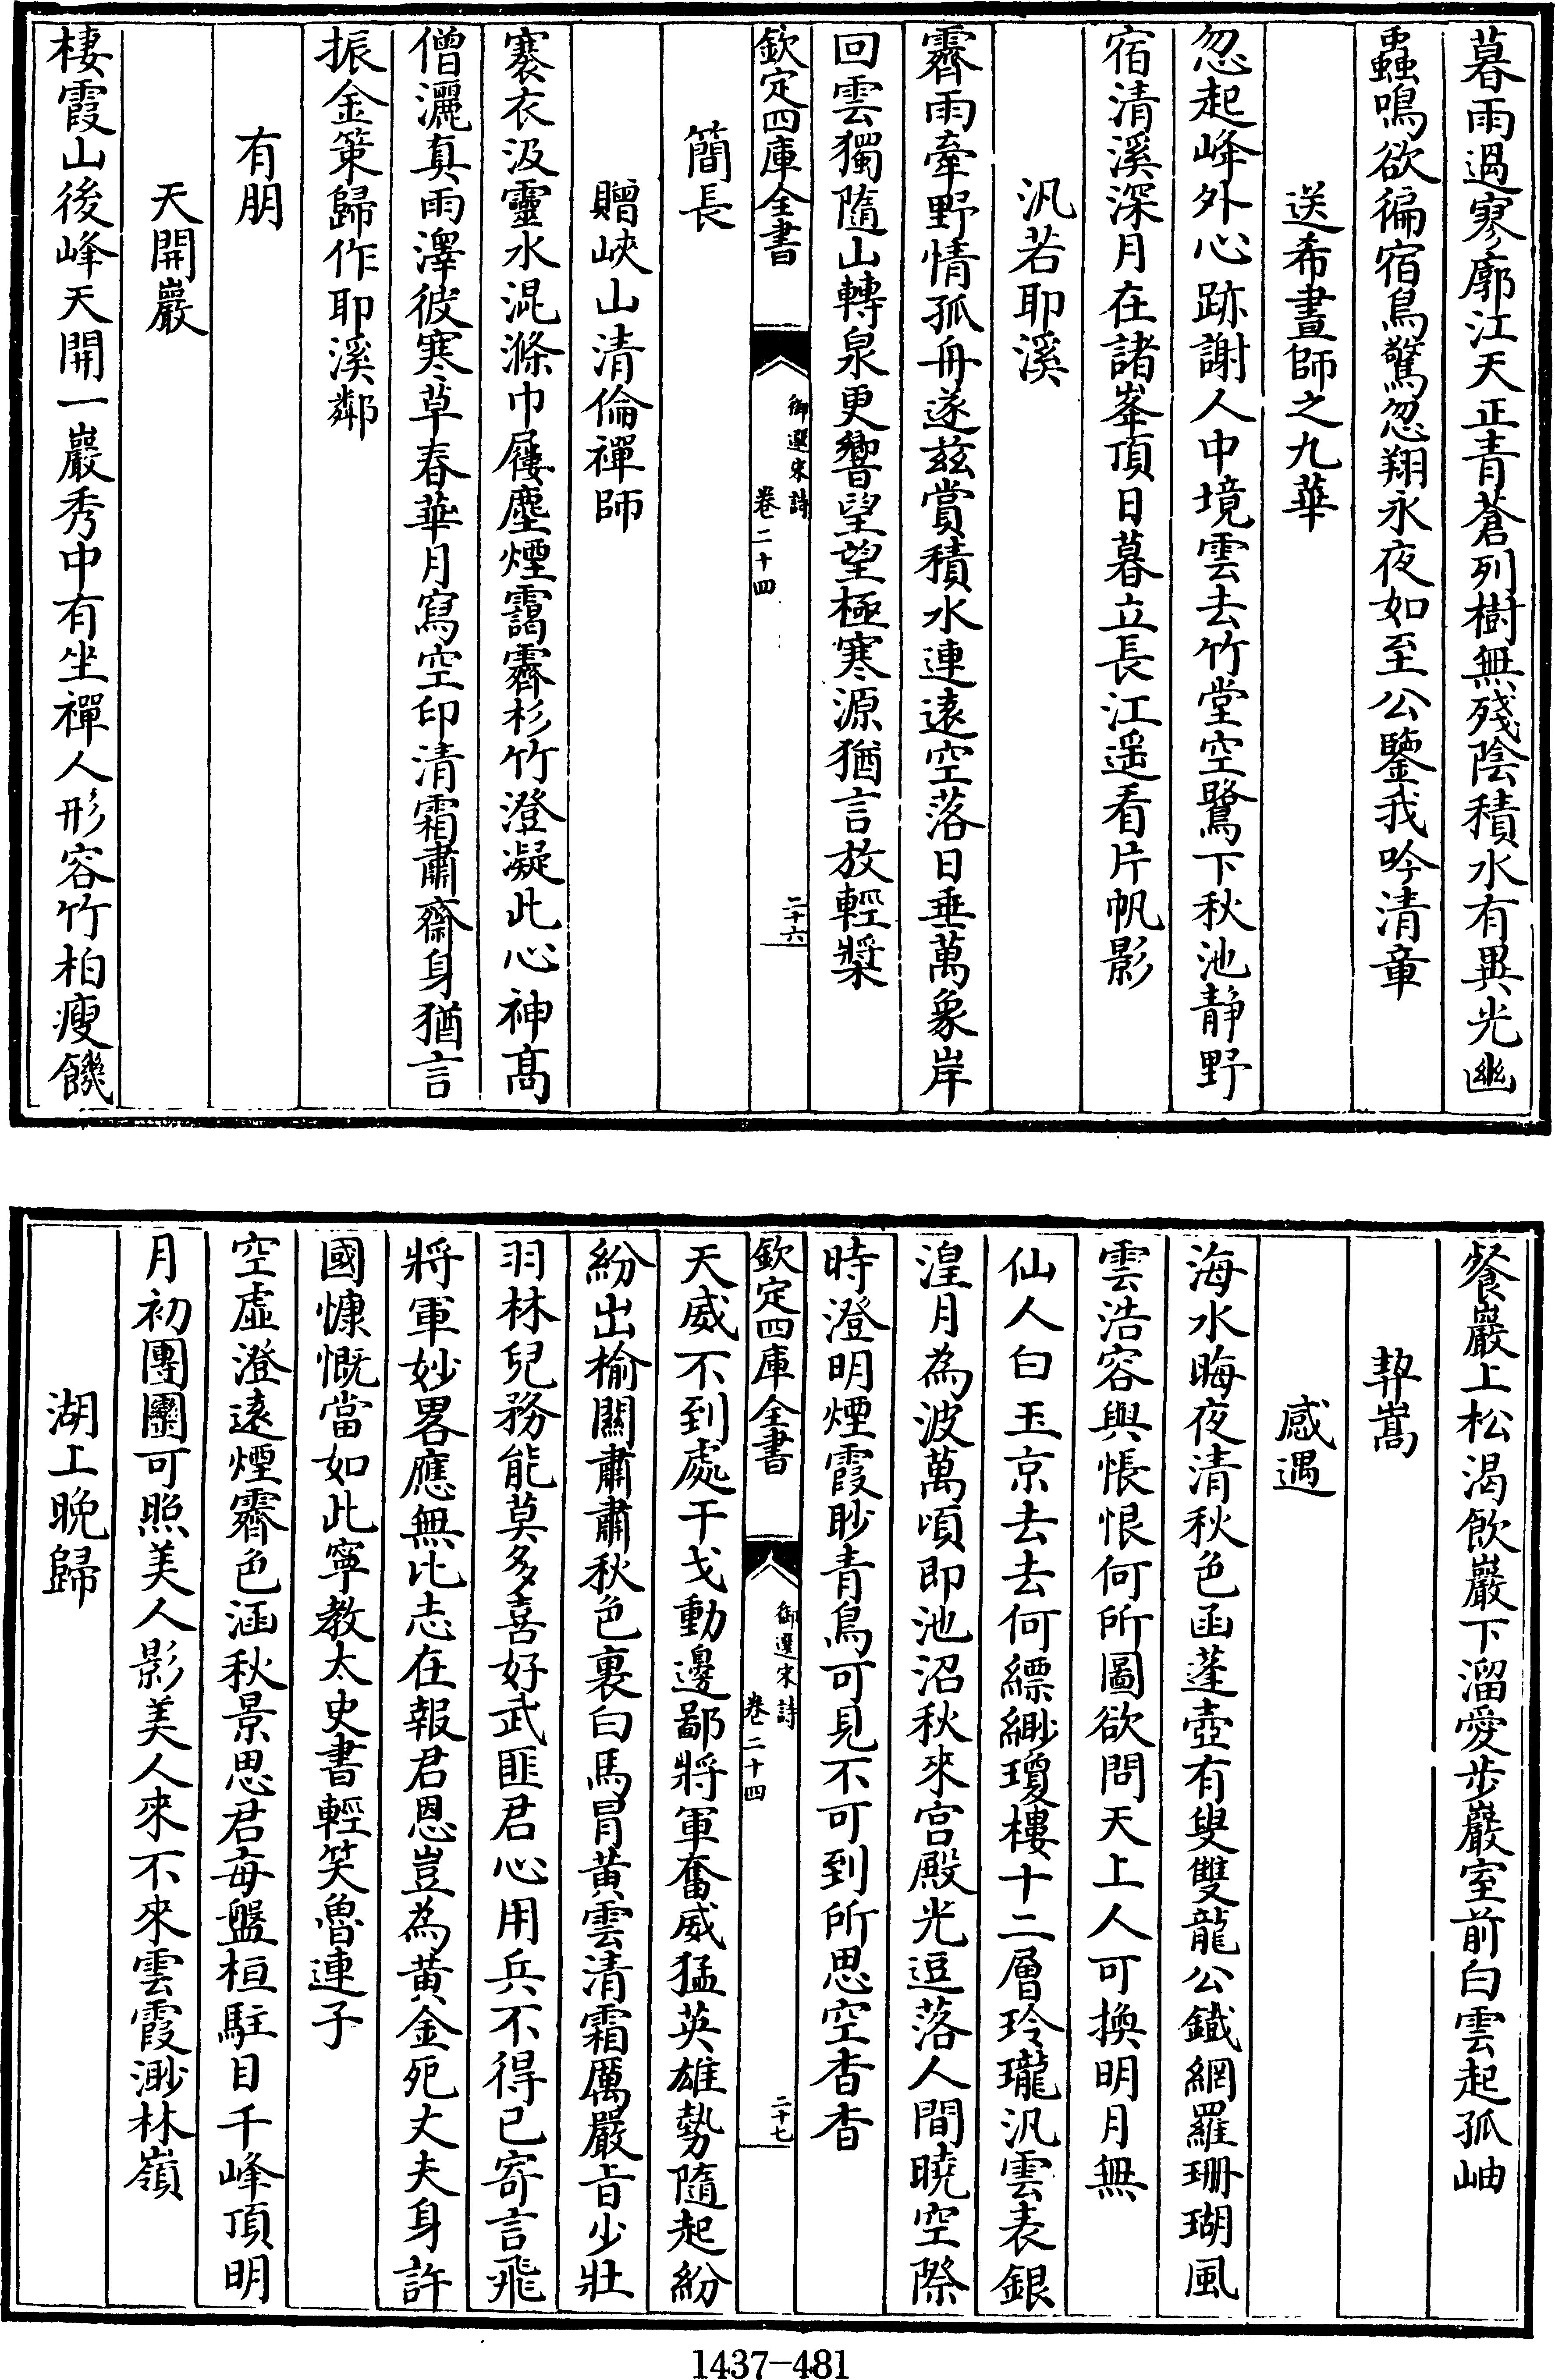 暮雨過寥廓江天正青蒼列樹無殘陰積水有異光幽
蟲鳴欲徧宿鳥驚忽翔永夜如至公鑒我吟清章
送希晝師之九華
忽起峰外心跡謝人中境雲去竹堂空鷺下秋池靜野
宿清溪深月在諸峯頂日暮立長江遥看片帆影
汎若耶溪
霽雨牽野情孤舟遂兹賞積水連遠空落日垂萬象岸
回雲獨隨山轉泉更響望望極寒源猶言放輕槳
欽定四庫全書
御選宋詩
卷二十四
二十六
簡長
贈峽山清倫禪師
褰衣汲靈水混滌巾屨塵煙靄霽杉竹澄凝此心神髙
僧灑真雨澤彼寒草春華月寫空印清霜肅齋身猶言
振金策歸作耶溪鄰
有朋
天開巖
棲霞山後峰天開一巖秀中有坐禪人形容竹柏瘦饑
餐巖上松渴飲巖下溜愛步巖室前白雲起孤岫
契嵩
感遇
海水晦夜清秋色函蓬壺有叟雙龍公鐵網羅珊瑚風
雲浩容與悵恨何所圖欲問天上人可換明月無
仙人白玉京去去何縹緲瓊樓十二層玲瓏汎雲表銀
湟月為波萬頃即池沼秋來宫殿光逗落人間曉空際
時澄明煙霞眇青鳥可見不可到所思空杳杳
欽定四庫全書
御選宋詩
卷二十四
二十七
天威不到處干戈動邊鄙將軍奮威猛英雄勢隨起紛
紛出榆關肅肅秋色裏白馬冐黄雲清霜厲嚴㫖少壯
羽林兒務能莫多喜好武匪君心用兵不得已寄言飛
將軍妙畧應無比志在報君恩豈為黄金死丈夫身許
國慷慨當如此寧教太史書輕笑魯連子
空虚澄遠煙霽色涵秋景思君每盤桓駐目千峰頂明
月初團圞可照美人影美人來不來雲霞渺林嶺
湖上晚歸
1437-481